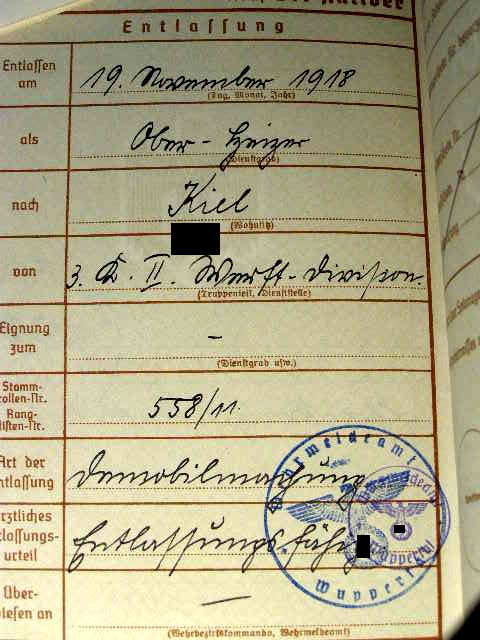 Entlassung
Entlassen am 19. November 1918
(Tag, Monat, Jahr)
als Ober-Heizer
(Dienstgrad)
nach Kiel
(Wohnsitz)
von 3. K. II. Werft-Division.
(Truppenteil, Dienststelle)
Eignung zum –
(Dienstgrad usw.)
Stamm-
rollen-Nr.
Rang-
listen-Nr.
558/11.
Art der
ntlassung
Demobilmachung
rztliches
tlassungs-
urteil
Entlassungsfähig
Über-
wiesen an —
(Wehrbezirkskommando, Wehrmeldeamt)
Wehrmeldeamt
Wuppertal